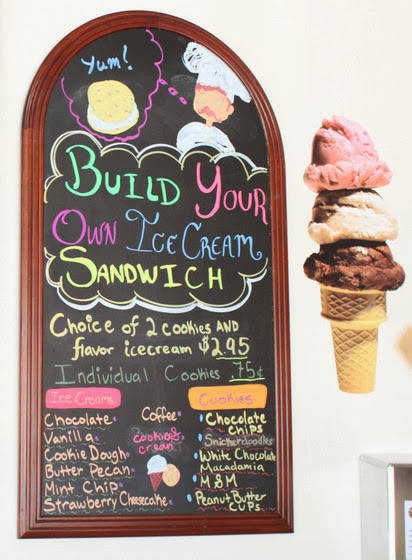 Yum!
BUILD YOUR
OWN ICE CREAM
SANDWICH
Choice of 2 cookies AND
flavor icecream $2.95
Individual Cookies 75¢
Ice Creams
Chocolate
Vanilla
Cookie Dough
Butter Pecan
Mint Chip
Strawberry Cheesecake
Coffee
cookies &
cream
Cookies
Chocolate
chips
Snickerdoodles
White Chocolate
Macadamia
M&M
Peanut Butter
cups